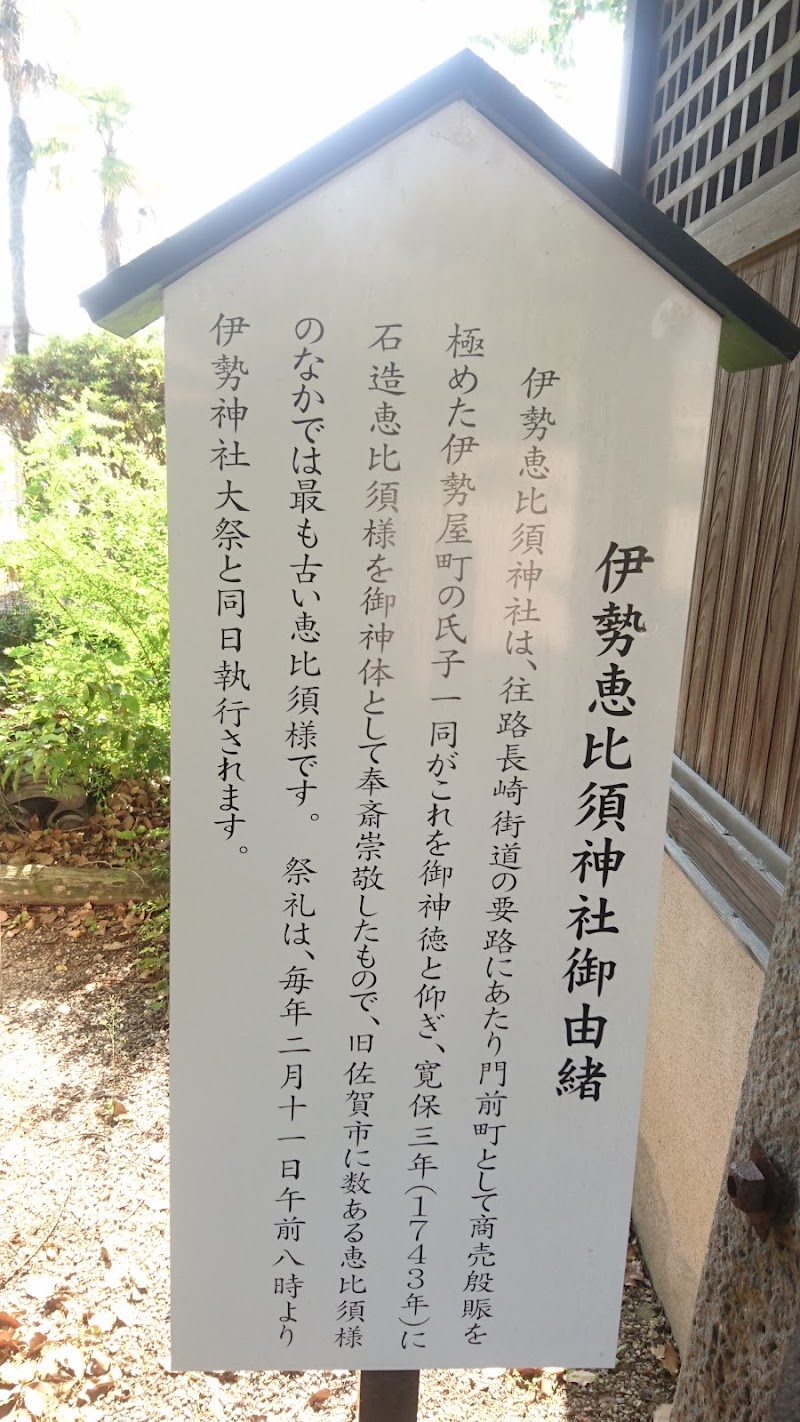 伊勢恵比須神社御由緒
伊勢恵比須神社は、往路長崎街道の要路にあたり門前町として商売殷賑を
極めた伊勢屋町の氏子一同がこれを御神徳と仰ぎ、寛保三年(1743年)に
石造恵比須様を御神体として奉斎崇敬したもので、旧佐賀市に数ある恵比須様
のなかでは最も古い恵比須様です。 祭礼は、毎年二月十一日午前八時より
伊勢神社大祭と同日執行されます。